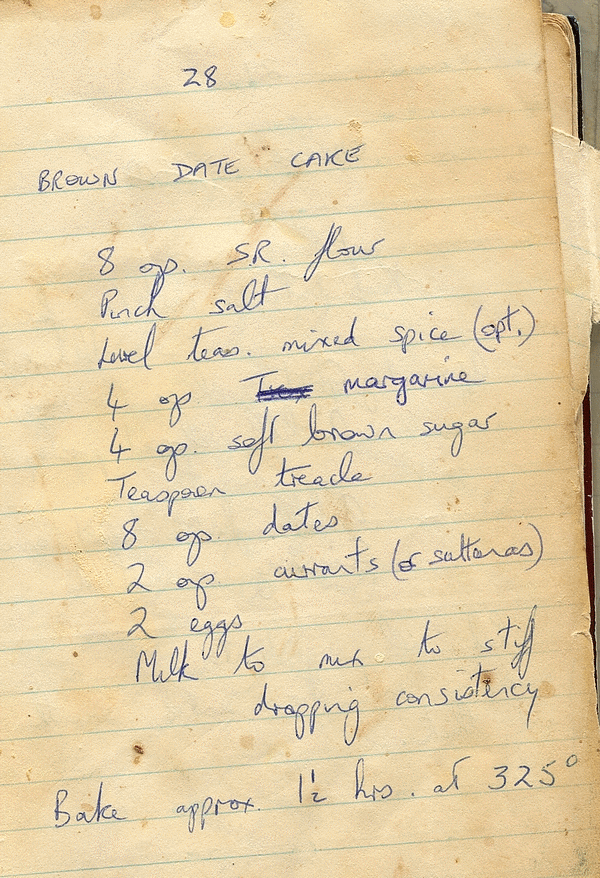 28
BROWN DATE CAKE
8 oz. S.R. flour
Pinch salt
Level teas. mixed spice (opt.)
4 oz margarine
4 oz. soft brown sugar
Teaspoon treacle
8 oz. dates
2 oz currants (or sultanas)
2 eggs
Milk to mix to stiff
dropping consistency
Bake approx. 1½ hrs. at 325°